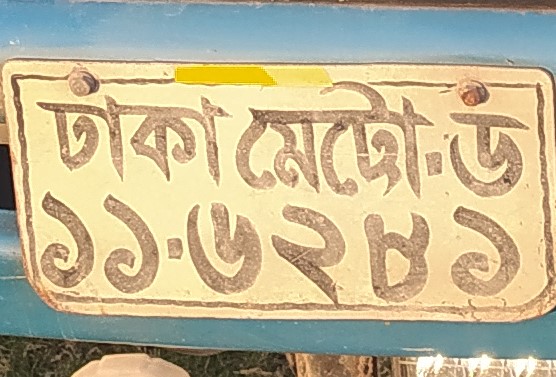 ঢাকা মেট্রো-ড
১১-৬২৪১